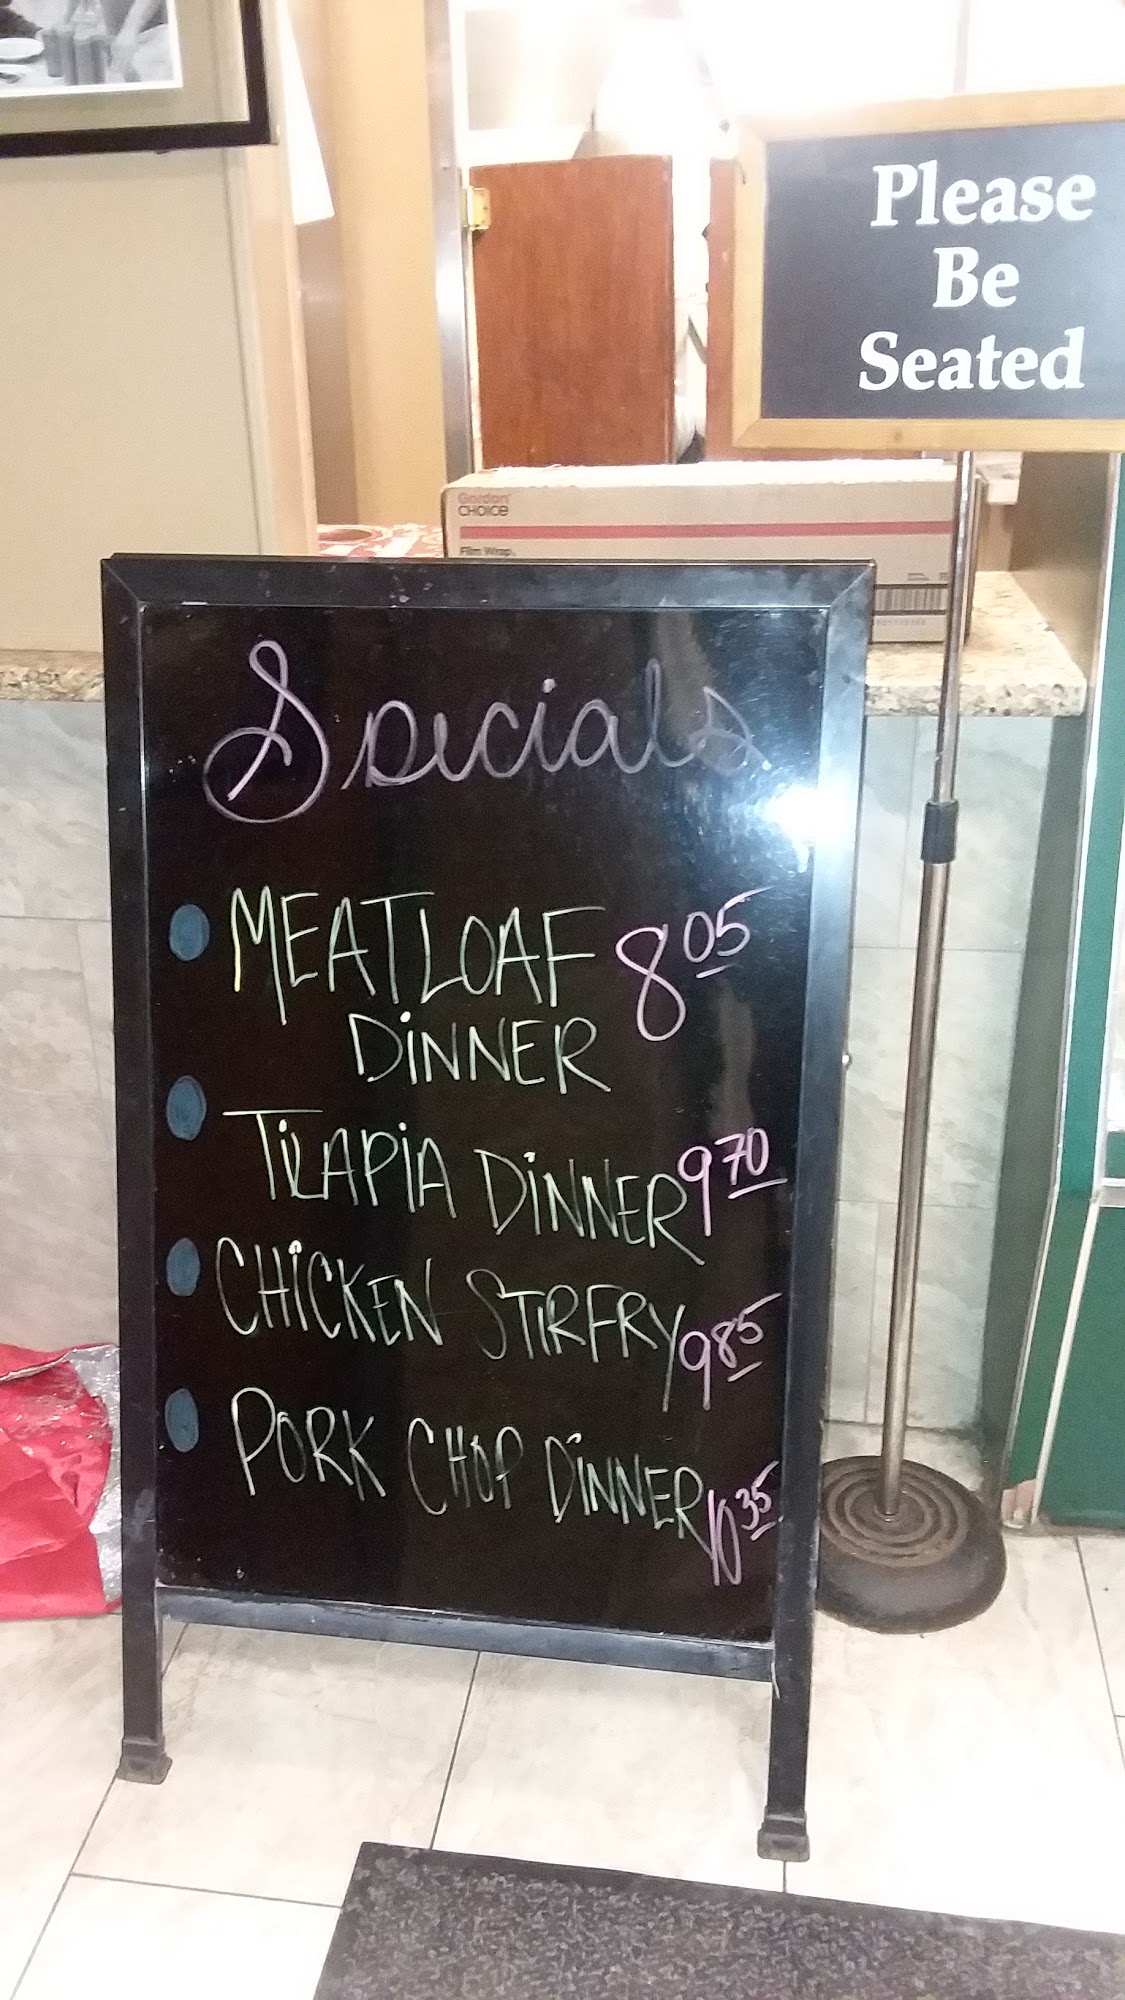 Please
Be
Seated
Gordon
CHOICE
Film Wrap
Specials
MEATLOAF 8 05
DINNER
TILAPIA DINNER 9 70
CHICKEN STIRFRY 9 85
PORK CHOP DINNER 10 35